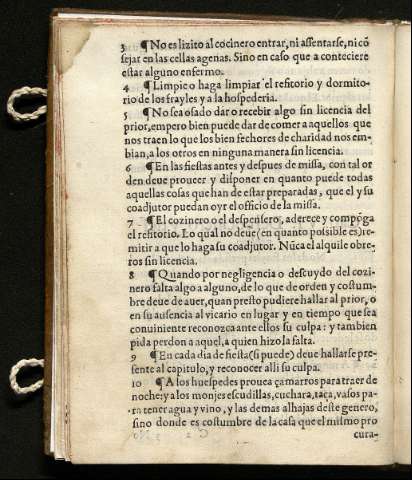 3 ¶No es lizito al cocinero entrar, ni assentarse, ni cõ
sejar en las cellas agenas. Sino en caso que a conteciere
estar alguno enfermo.
4 ¶Limpie o haga limpiar el refitorio y dormito-
rio de los frayles y a la hospederia.
5 ¶No sea osado dar o recebir algo sin licencia del
prior, empero bien puede dar de comer a aquellos que
nos traen lo que los bien fechores de charidad nos em-
bian, a los otros en ninguna manera sin licencia.
6 ¶En las fiestas antes y despues de missa, con tal or
den deue proueer y disponer en quanto puede todas
aquellas cosas que han de estar preparadas, que el y su
coadjutor puedan oyr el officio de la missa.
7 ¶El cozinero o el despensero, aderece y compõga
el refitorio. Lo qual no deue (en quanto possible es) re-
mitir a que lo haga su coadjutor. Nũca el alquile obre-
ros sin licencia.
8 ¶Quando por negligencia o descuydo del cozi-
nero falta algo a alguno, de lo que de orden y costum-
bre deue de auer, quan presto pudiere hallar al prior, o
en su ausencia al vicario en lugar y en tiempo que sea
conuiniente reconozca ante ellos su culpa: y tambien
pida perdon a aquel, a quien hizo la falta.
9 ¶En cada dia de fiesta (si puede) deue hallarse pre-
sente al capitulo, y reconocer alli su culpa.
10 ¶A los huespedes prouea çamarros para traer de
noche: y a los monjes escudillas, cuchara, taça, vasos pa-
ra tener agua y vino, y las demas alhajas deste genero,
sino donde es costumbre de la casa que el mismo pro
cura-